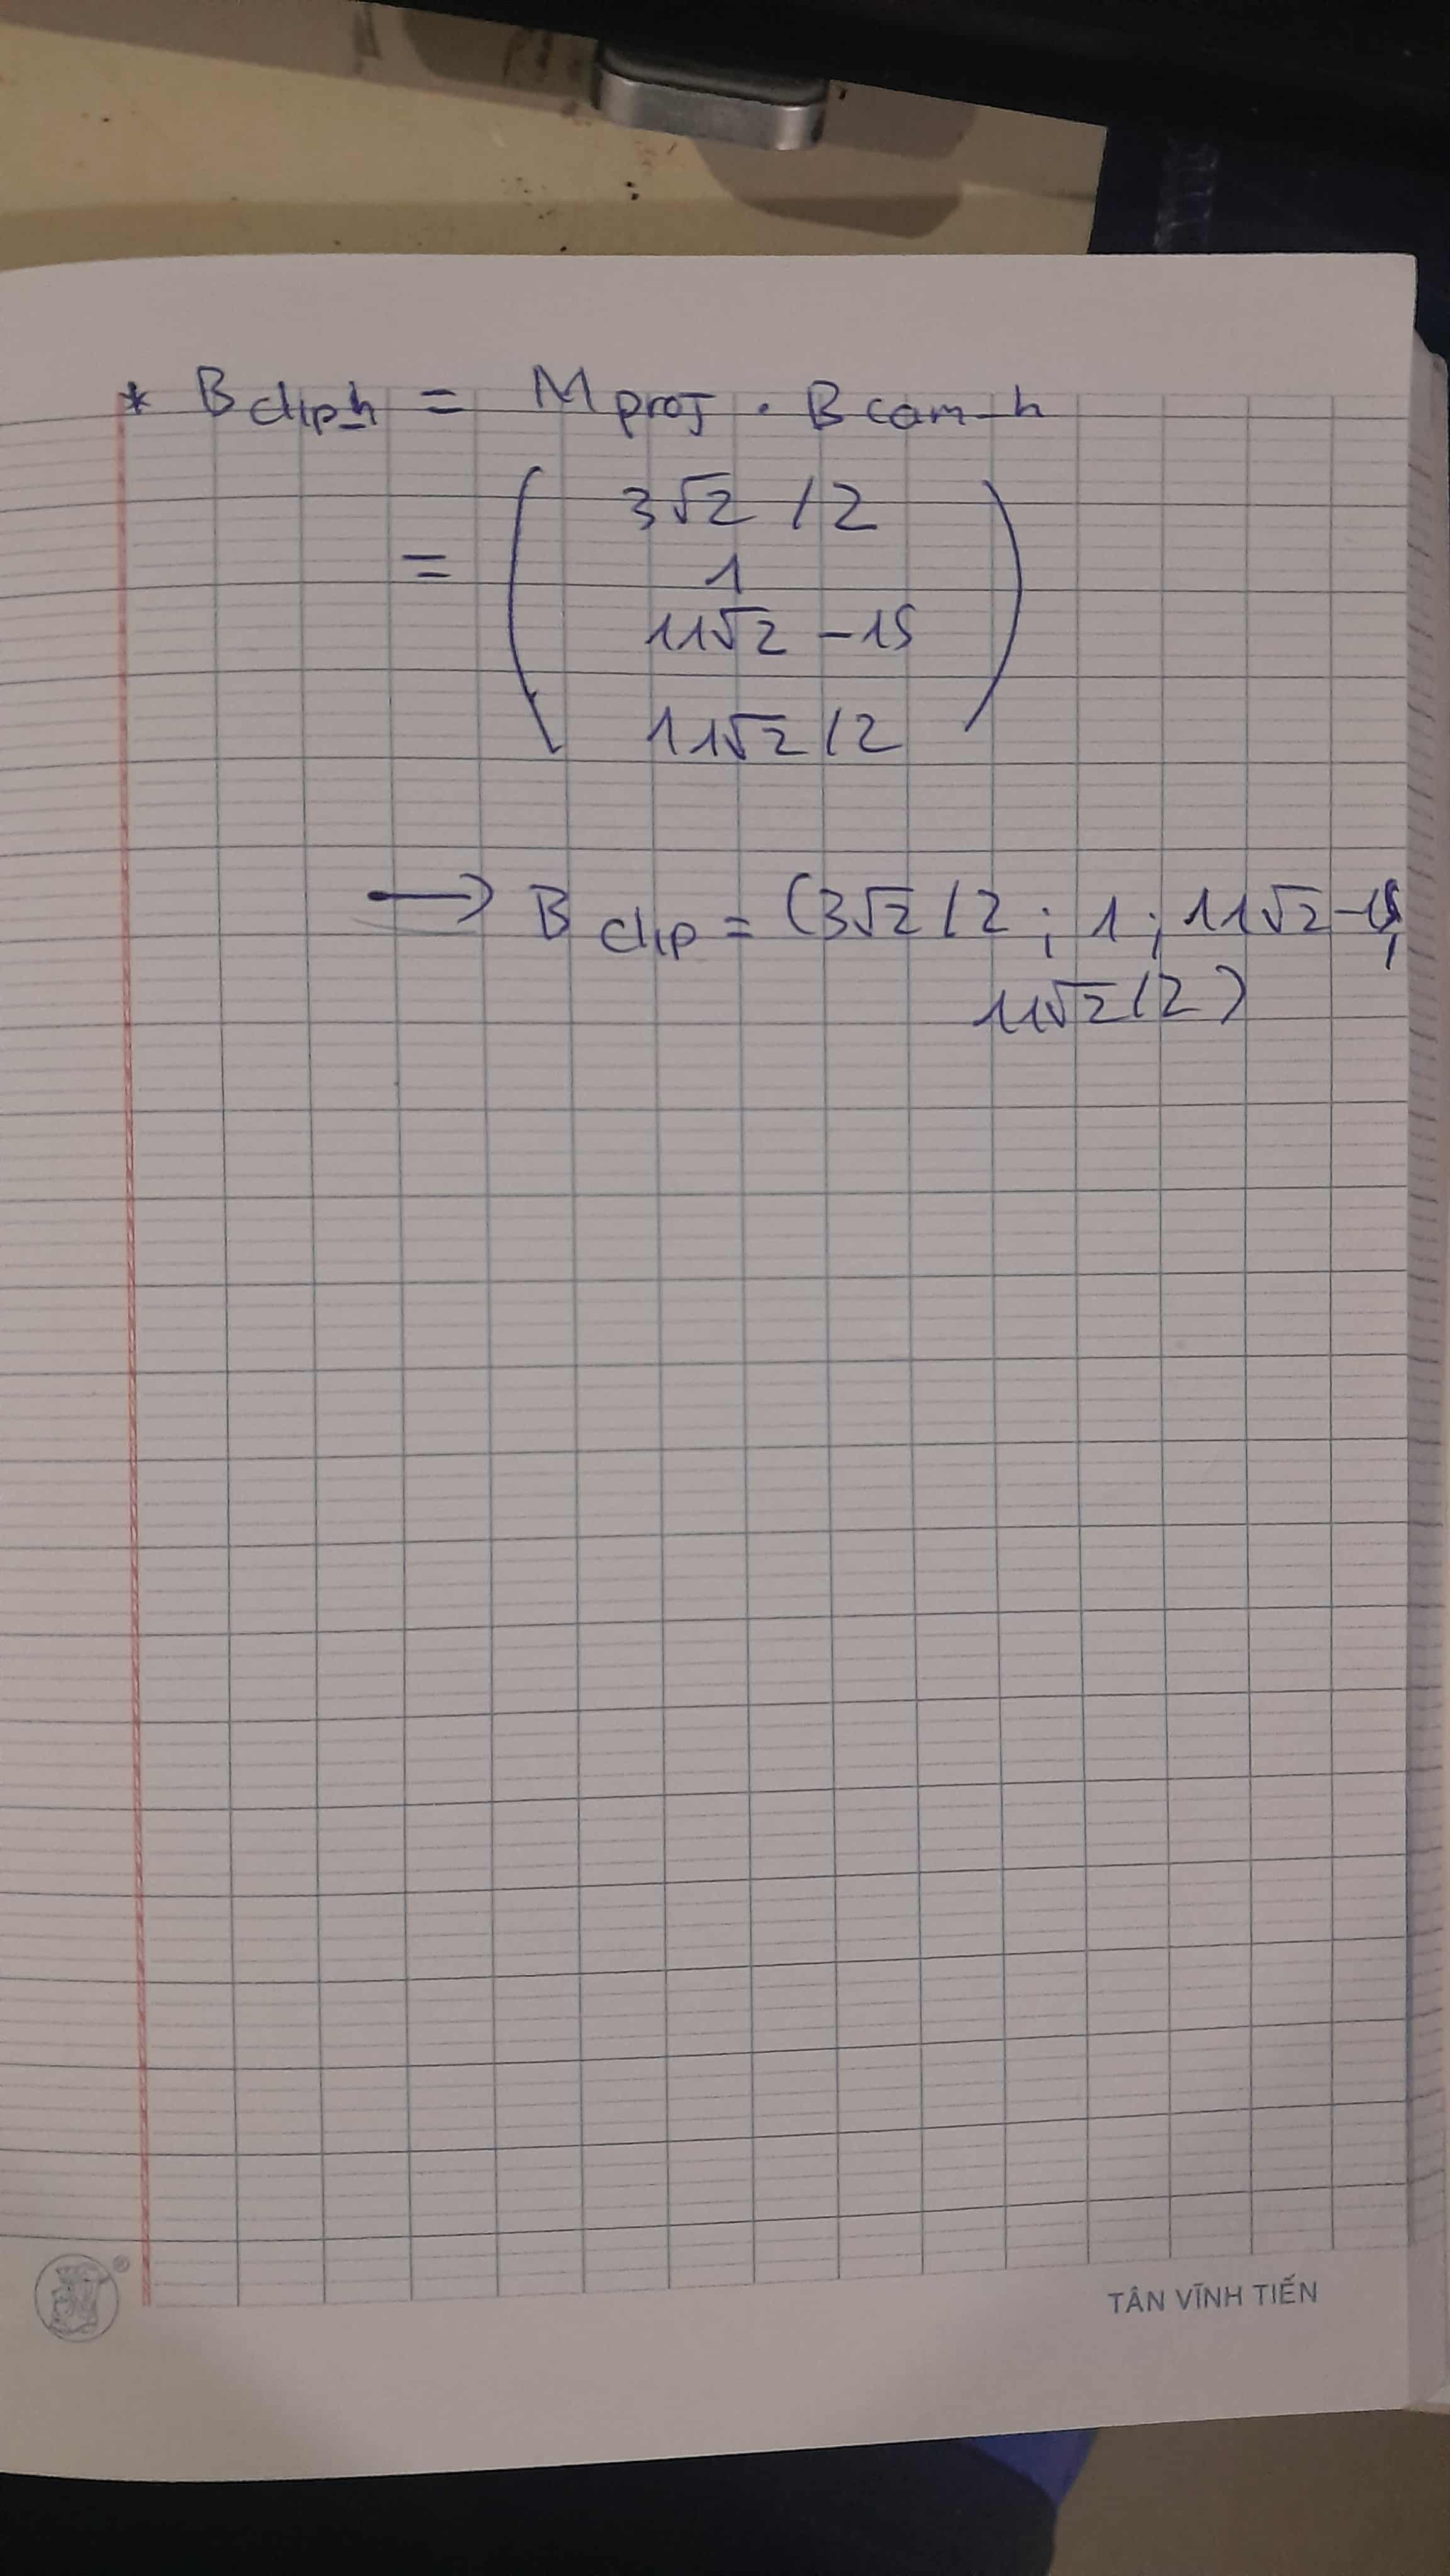 * B clip_h = M proj . B cam_h
= ( 3√2 / 2
1
11√2 - 15
11√2 / 2 )
→ B clip = (3√2 / 2 ; 1 ; 11√2 - 15;
11√2 / 2 )
TÂN VĨNH TIẾN
®